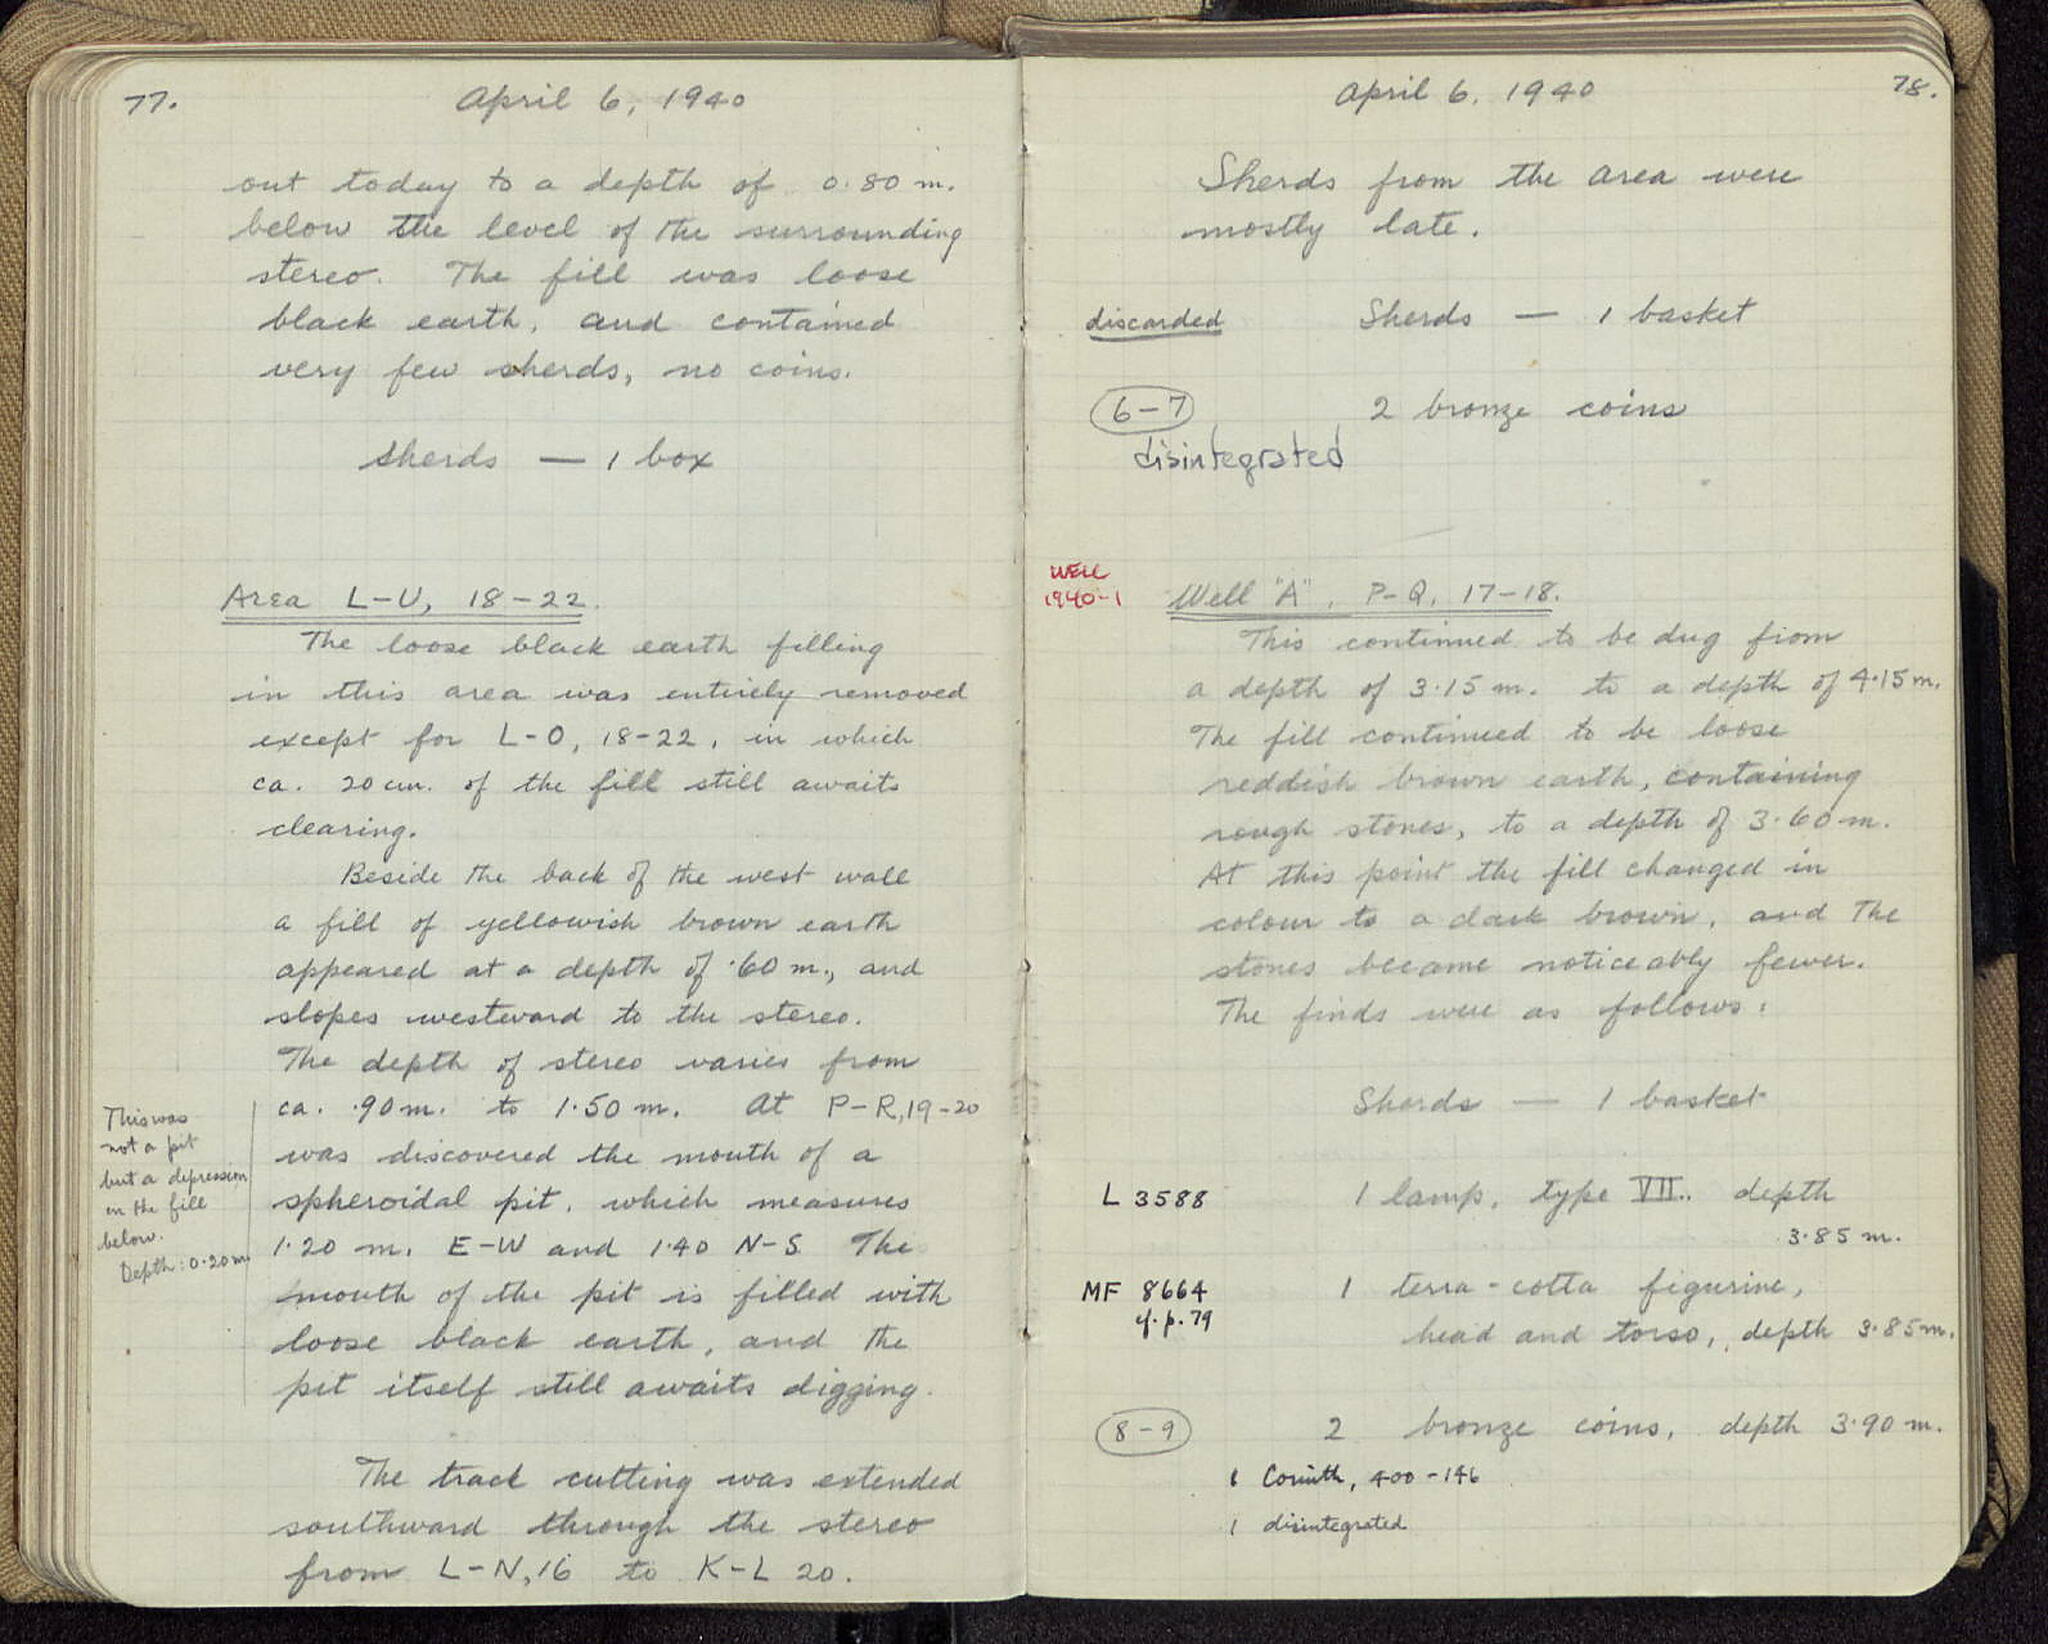 77.
April 6, 1940
out today to a depth of 0.80 m.
below the level of the surrounding
stereo. The fill was loose
black earth, and contained
very few sherds, no coins.
Sherds — 1 box
Area L-U, 18-22.
The loose black earth filling
in this area was entirely removed
except for L-O, 18-22, in which
ca. 20 cm. of the fill still awaits
clearing.
Beside the back of the west wall
a fill of yellowish brown earth
appeared at a depth of .60 m., and
slopes westward to the stereo.
The depth of stereo varies from
ca. .90 m. to 1.50 m. At P-R, 19-20
was discovered the mouth of a
spheroidal pit, which measures
1.20 m. E-W and 1.40 N-S. The
mouth of the pit is filled with
loose black earth, and the
pit itself still awaits digging.
This was
not a pit
but a depression
in the fill
below.
Depth: 0.20 m.
The track cutting was extended
southward through the stereo
from L-N, 16 to K-L 20.
April 6, 1940
78.
Sherds from the area were
mostly late.
discarded Sherds — 1 basket
6-7 2 bronze coins
disintegrated
WELL
1940-1
Well "A", P-Q, 17-18.
This continued to be dug from
a depth of 3.15 m. to a depth of 4.15 m.
The fill continued to be loose
reddish brown earth, containing
rough stones, to a depth of 3.60 m.
At this point the fill changed in
colour to a dark brown, and the
stones became noticeably fewer.
The finds were as follows:
Sherds — 1 basket
L 3588 1 lamp, type VII. depth
3.85 m.
MF 8664 1 terra-cotta figurine,
cf. p. 79
head and torso, depth 3.85 m.
8-9 2 bronze coins, depth 3.90 m.
1 Corinth, 400-146
1 disintegrated